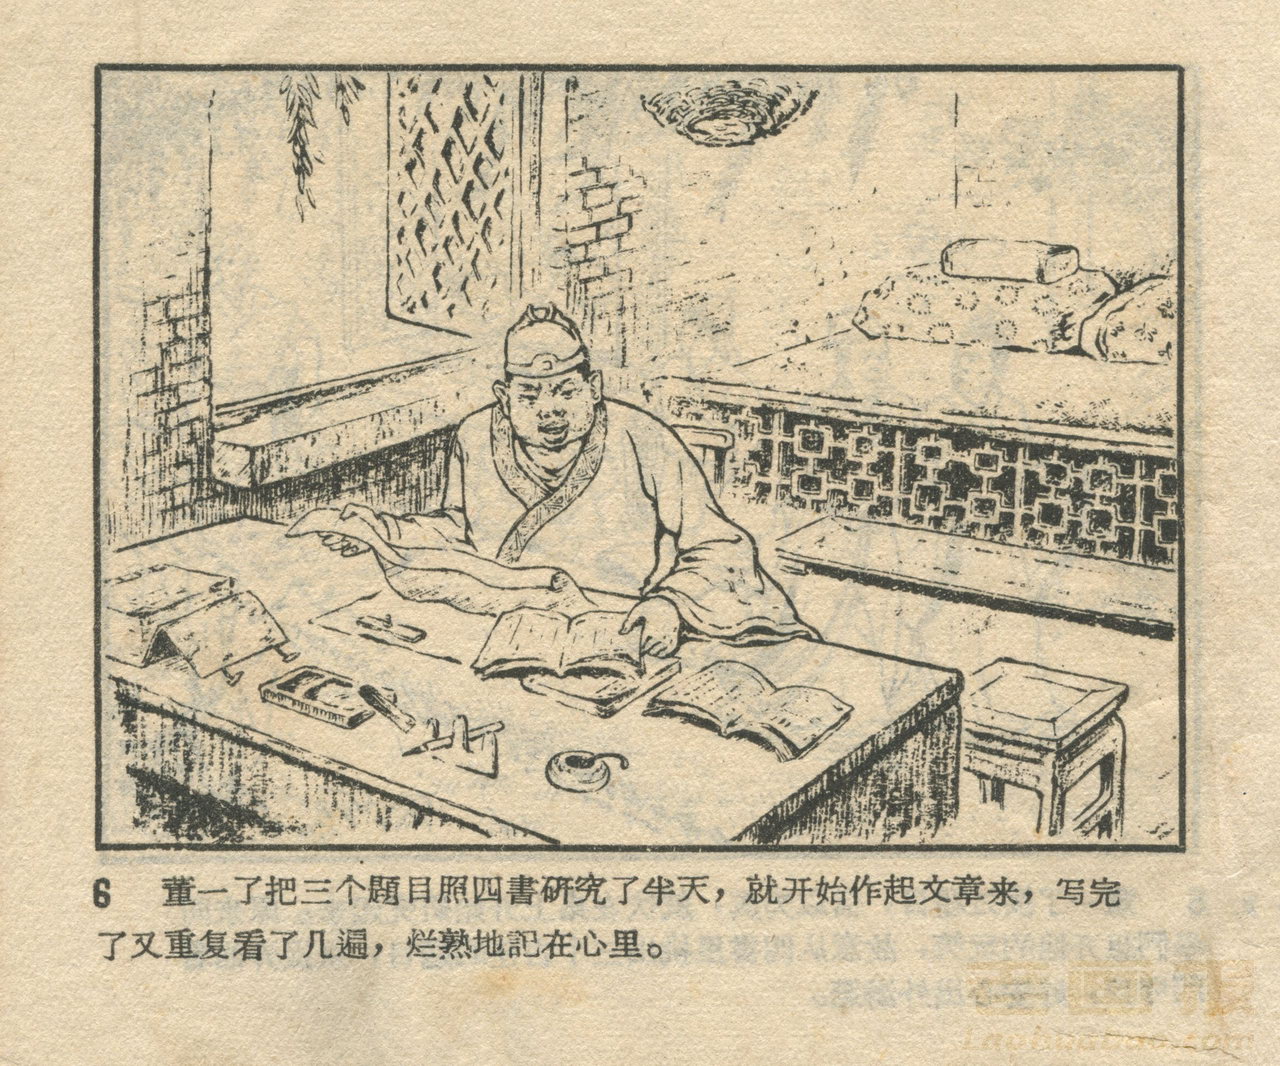 6 董一了把三个題目照四書研究了半天，就开始作起文章来，写完
了又重复看了几遍，烂熟地記在心里。
Laohuabao.com